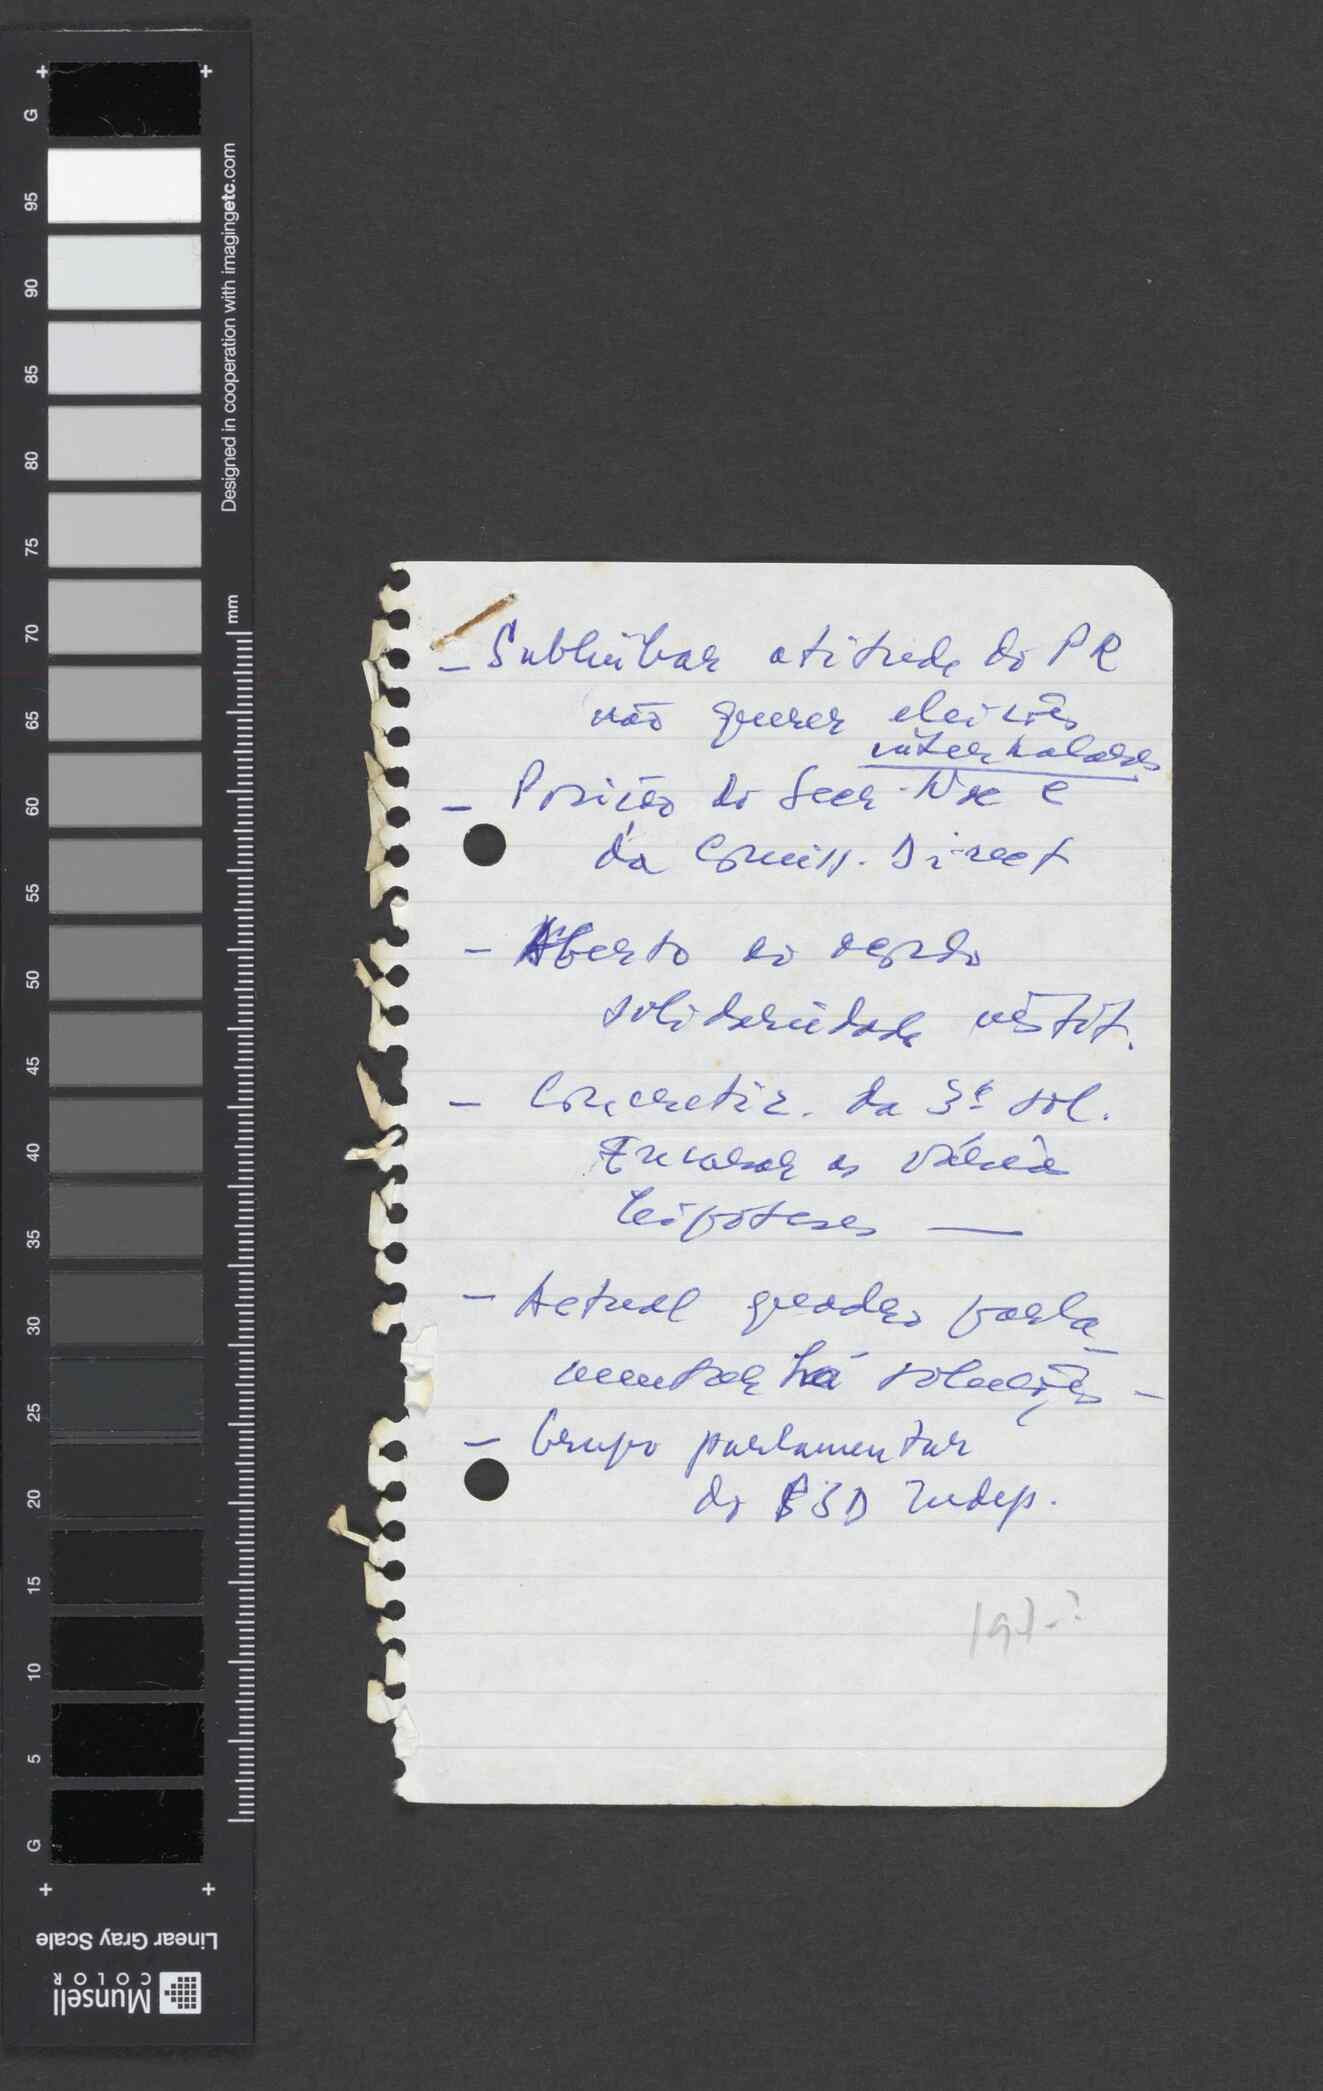 G
95
90
85
80
75
70
65
60
55
50
45
40
35
30
25
20
15
10
5
G
Designed in cooperation with imagingetc.com
mm
Linear Gray Scale
Munsell
COLOR
- Sublinhar atitude do PR
não querer eleições
intercalares
- Posição do Secr. e
da Comiss. Direct
- Aberto ao acordo
solidariedade instit.
- Concretiz. da 3ª sol.
Encarar as várias
hipóteses —
- Actual quadro parla-
mentar há soluções -
- Grupo parlamentar
do PSD Indep.
197-?